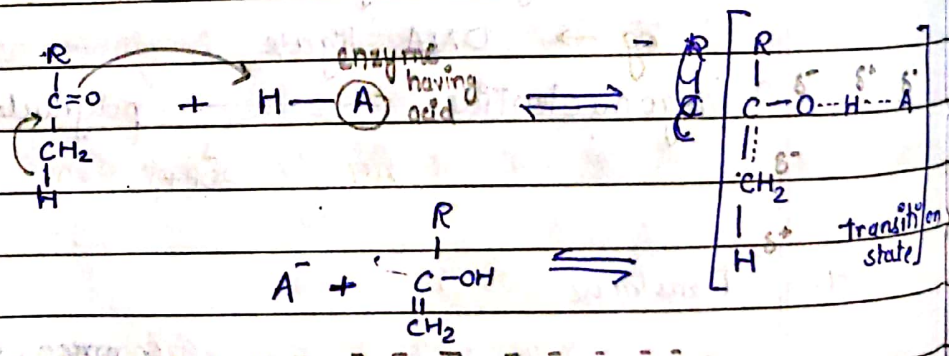 R
C=O + H—A enzyme having acid ⇌ R C—O---H---A δ⁻ δ⁺ δ⁻
CH₂ CH₂ δ⁻
H H δ⁺
transition state
R
A⁻ + C—OH ⇌
CH₂